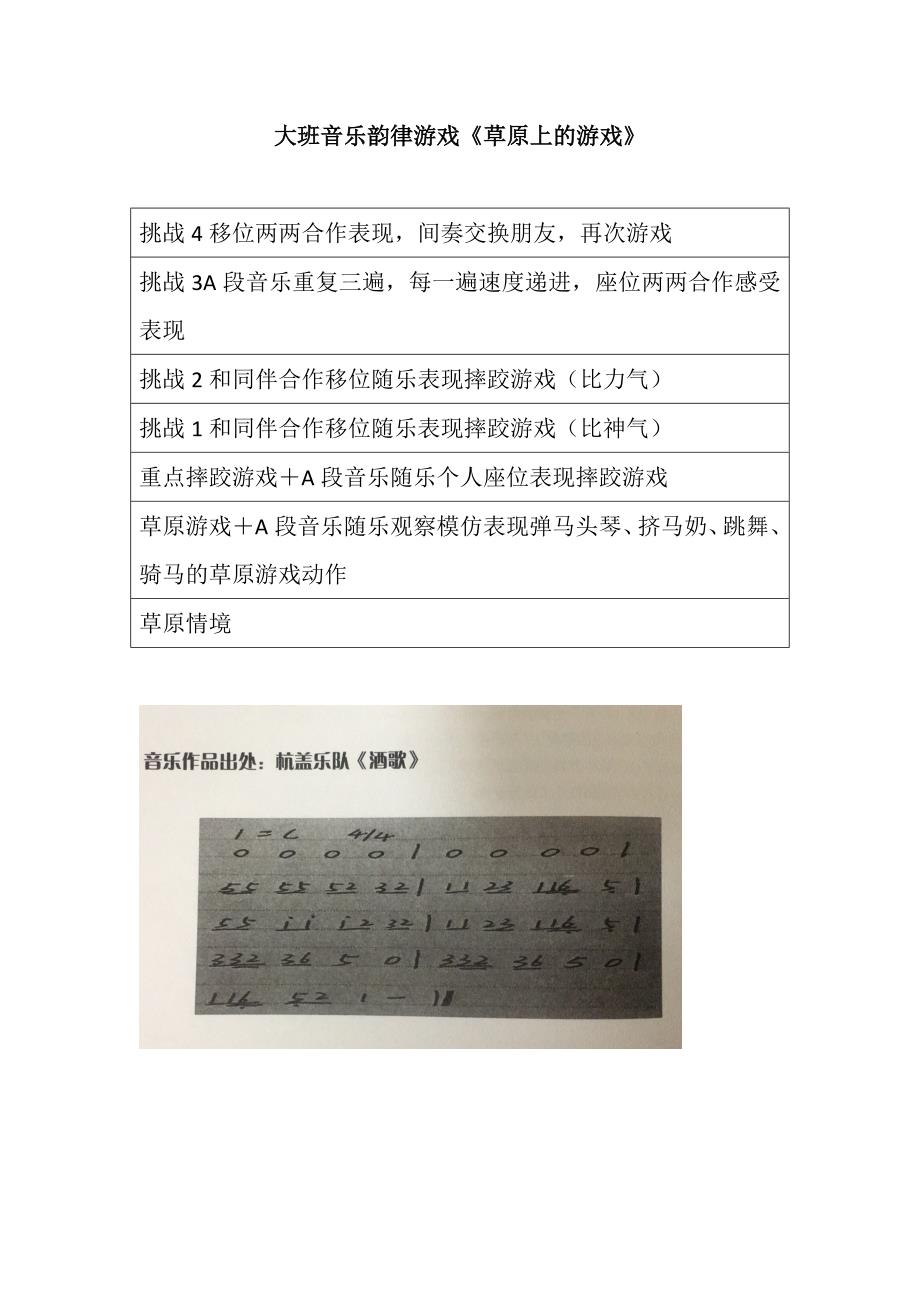 大班音乐韵律游戏《草原上的游戏》
挑战 4 移位两两合作表现，间奏交换朋友，再次游戏
挑战 3A 段音乐重复三遍，每一遍速度递进，座位两两合作感受
表现
挑战 2 和同伴合作移位随乐表现摔跤游戏（比力气）
挑战 1 和同伴合作移位随乐表现摔跤游戏（比神气）
重点摔跤游戏＋A 段音乐随乐个人座位表现摔跤游戏
草原游戏＋A 段音乐随乐观察模仿表现弹马头琴、挤马奶、跳舞、
骑马的草原游戏动作
草原情境
音乐作品出处：杭盖乐队《酒歌》
1 = C 4/4
0 0 0 0 | 0 0 0 0 |
55 55 52 32 | 11 23 116 5 |
55 ii i2 32 | 11 23 116 5 |
332 36 5 0 | 332 36 5 0 |
116 52 1 — ‖